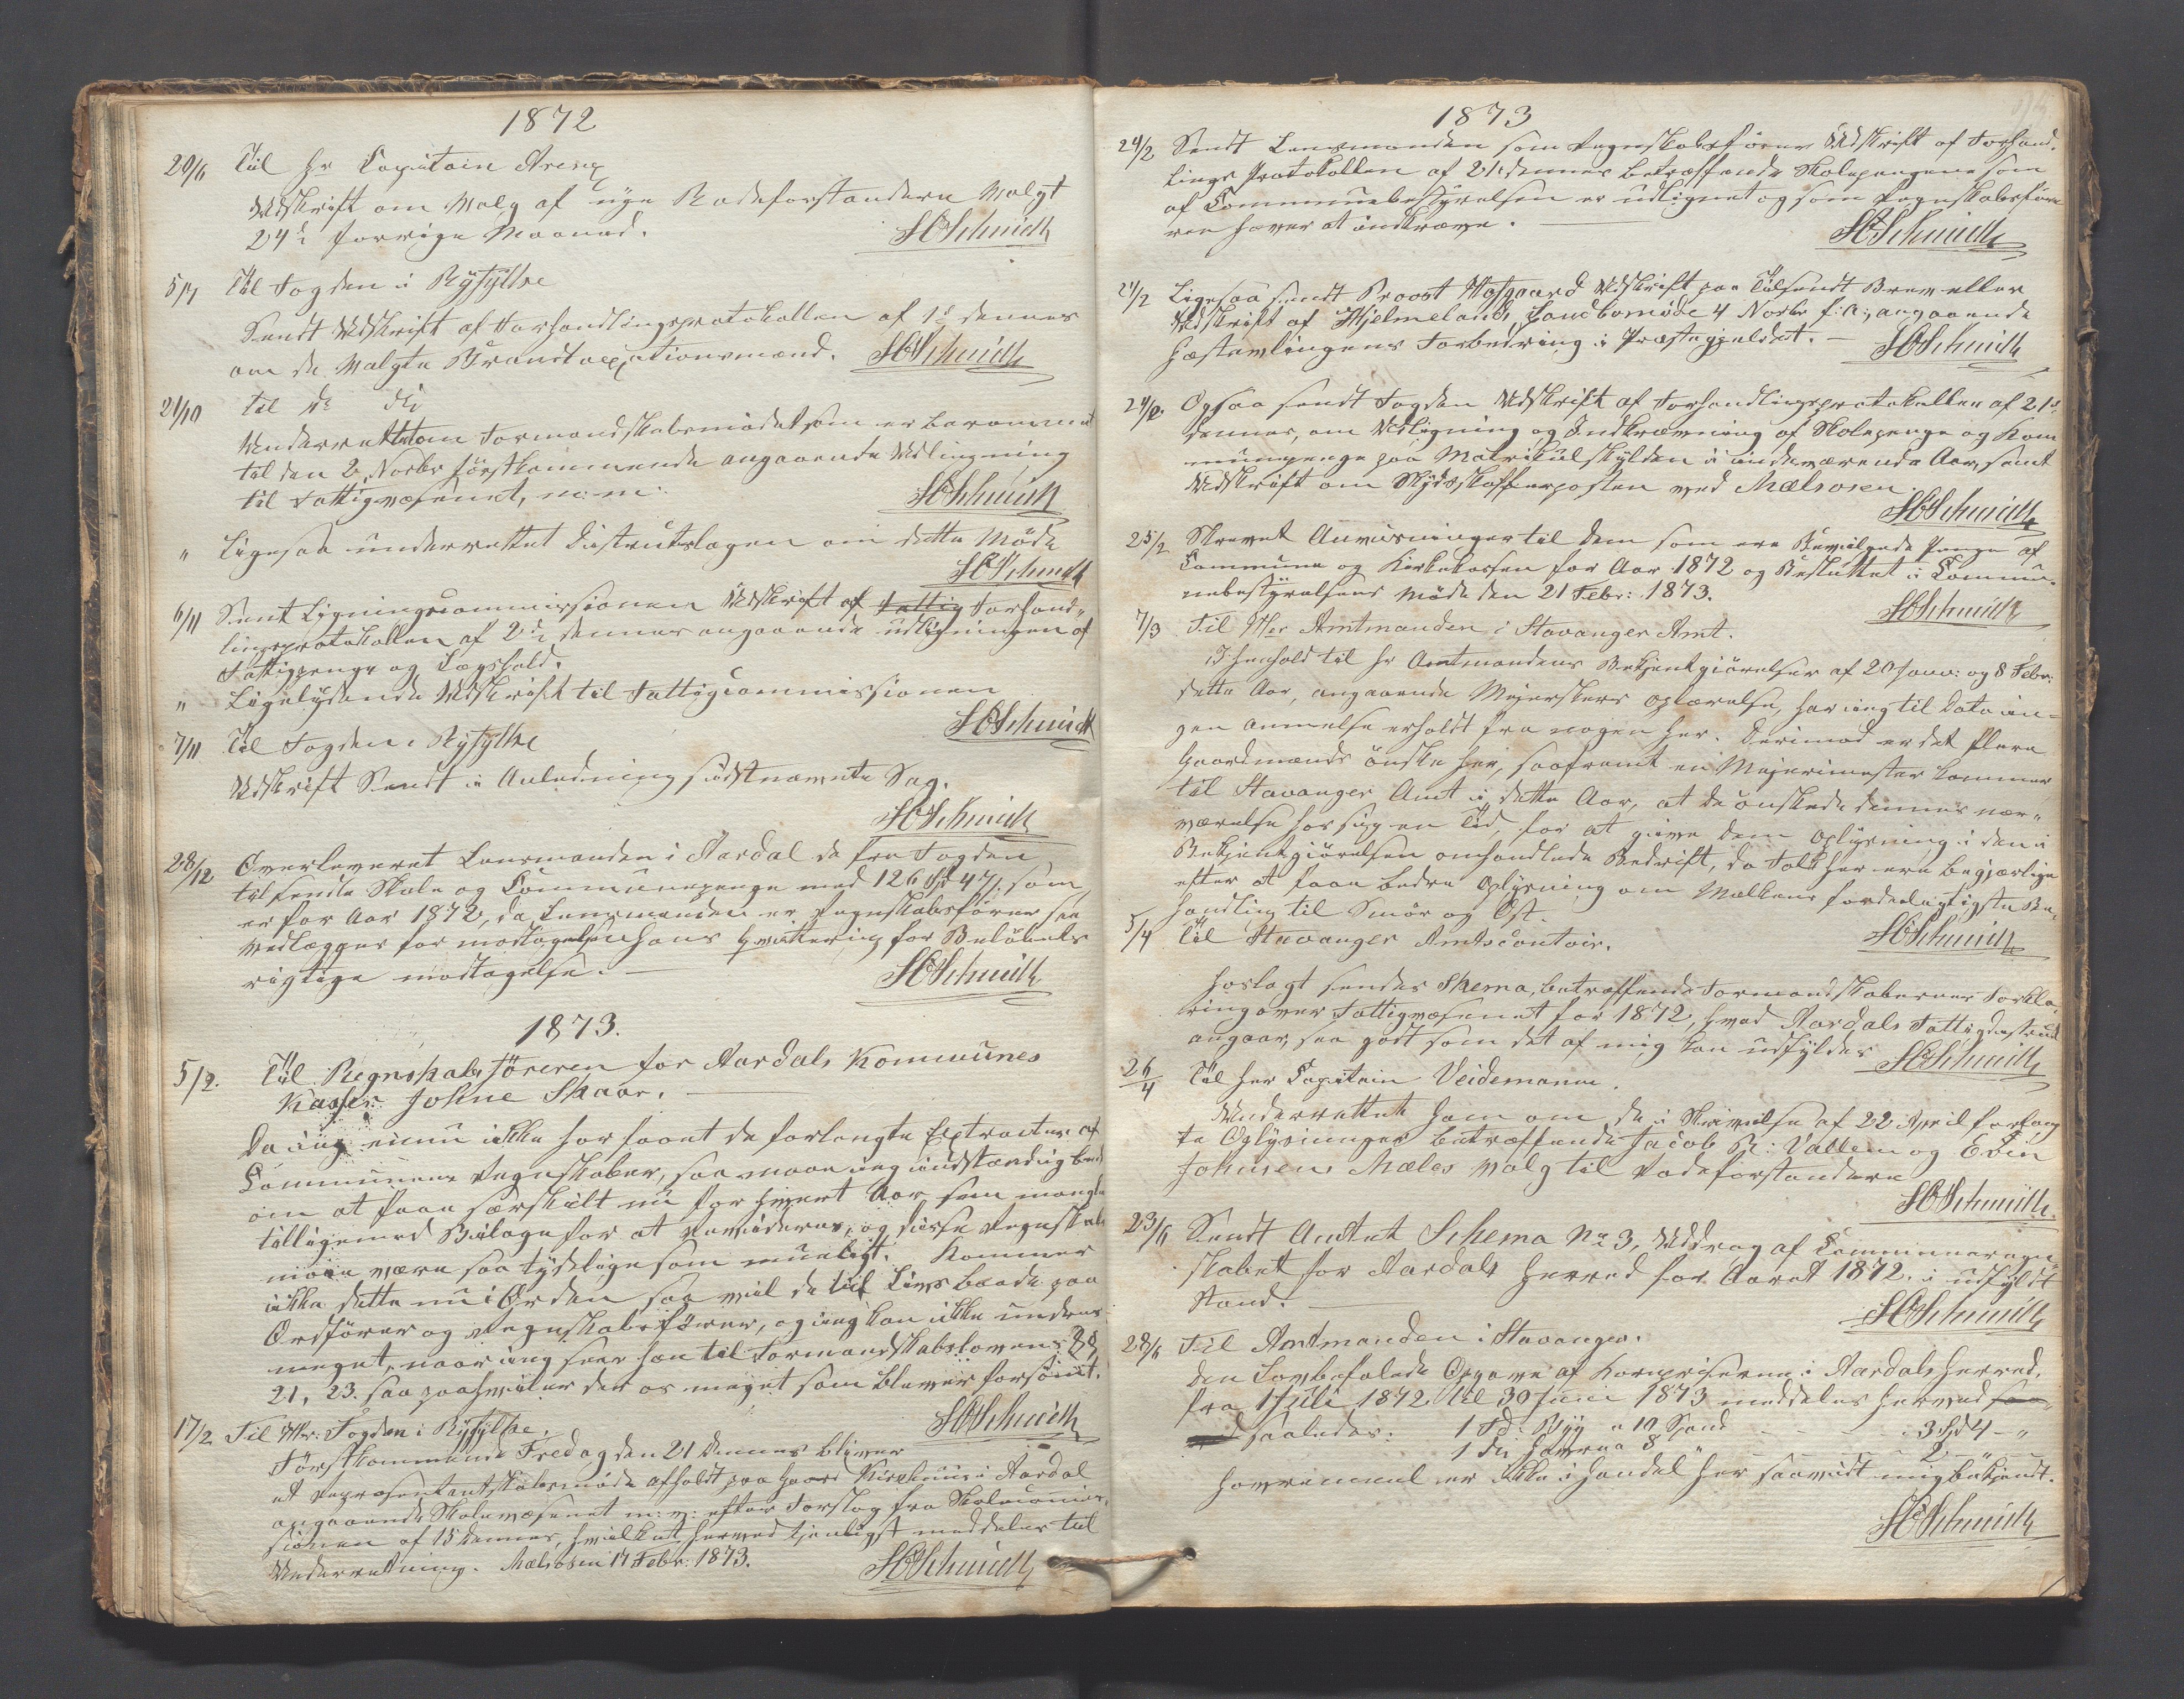 1872
20/6 Til Hr Capitain Areng
Udskrift om Valg af nye Rodeforstandere Valgt
24de forrige Maaned.
HCSchmidt
5/7 Til Fogden i Ryfylke
Sendt Udskrift af Forhandlingsprotokollen af 1ste dennes
om de Valgte Brandtaxationsmænd. HCSchmidt
21/10 Til do do
Underrettet om Formandskabsmødet som er berammet
til den 2 Novbr førstkommende angaaende Udligning
til Fattigvæsenet, m: m:
HCSchmidt
" Ligesaa underrettet Districtslægen om dette Møde
HCSchmidt
6/11 Sent Ligningscommissionen Udskrift af Fattig Forhand-
lingsprotokollen af 2den dennes angaaende udligningen af
Fattigpenge og Lægshold.
" Ligelydende Udskrift til Fattigcommissionen
HCSchmidt
7/11 Til Fogden i Ryfylke
Udskrift Sendt i Anledning sidstnævnte Sag.
HCSchmidt
28/12 Overleveret Lensmanden i Aardal de fra Fogden
tilsendte Skole og Communepenge med 126 Spd 47 s. som
er for Aar 1872, da Lensmanden er Regnskabsfører saa
vedlægges for modtagelsen hans Qvittering for Beløbets
rigtige modtagelse. —
HCSchmidt
1873.
5/2. Til Regnskabsføreren for Aardals Kommunes
Kasse: Johne Skaar. —
Da jeg ennu ikke har faaet de forlangte Extracter af
Communens Regnskaber, saa maae jeg indstændig bede
om at faae særskilt nu for hvert Aar som mangler
tilligemed Bilage for at revideres, og disse Regnskaber
maae være saa tydelige som mueligt. Kommer
ikke dette nu i Orden saa vil de til Livs baade paa
Ordfører og Regnskabsfører, og jeg kan ikke undres
meget, naar jeg seer hen til Formandskabslovens §§
21, 23. saa paahviler der os meget som bliver forsømt.
HCSchmidt
17/2 Til Hr: Fogden i Ryfylke.
Førstkommende Fredag den 21 dennes bliver
et Repræsentantskabsmøde afholdt paa Gaard Kirkhuus i Aardal
angaaende Skolevæsenet m: v: efter Forslag fra Skolecommis-
sionen af 15 dennes, hvilket herved tjenligst meddeles til
Underretning. Mælsosen 17 Febr: 1873.
HCSchmidt
1873
24/2 Sendt Lensmanden som Regnskabsfører Udskrift af Forhand-
lings Protokollen af 21 dennes betræffende Skolepengene som
af Communebestyrelsen er udlignet og som Regnskabsføre
ren haver at indkræve. —
HCSchmidt
24/2 Ligesaa sendt Provst Hofgaard Udskrift paa tilsendt Brev eller
Udskrift af Hjelmelands Sanebomøde 4 Novbr f: A:, angaaende
Hesteavlingens Forbedring i Præstegjeldet. —
HCSchmidt
24/2. Ogsaa sendt Fogden Udskrift af Forhandlingsprotokollen af 21de
dennes, om Udligning og Indkrævning af Skolepenge og Kom
munepenge paa Matrikulskylden i indeværende Aar, samt
Udskrift om Skydsskafferposten ved Mælsosen
HCSchmidt
25/2 Skrevet Anviisninger til dem som ere Bevilgede Penge af
Commune og Kirkekassen for Aar 1872 og Besluttet i Commu-
nebestyrelsens Møde den 21 Febr: 1873.
HCSchmidt
7/3 Til Hr Amtmanden i Stavanger Amt.
I henhold til Hr Amtmandens Bekjentgjørelser af 20 Janv: og 8 Febr:
dette Aar, angaaende Mejerskers oplærelse, har jeg til Dato in-
gen anmelse erholdt fra nogen her. Derimod er det flere
Gaardmænds ønske her, saafremt en Mejerimester kommer
til Stavanger Amt i dette Aar, at de ønskede dennes nær-
værelse hos sig en Tid, for at give dem oplysning i den i
Bekjentgjørelsen omhandlede Bedrift, da Folk her ere begjærlige
efter at faae bedre Oplysning om Melkens fordelagtigste Be-
handling til Smør og Ost.
HCSchmidt
5/4 Til Stavanger Amtscontoir.
Hoslagt sendes Skema, betræffende Formandskabernes Forkla-
ring over Fattigvæsenet for 1872, hvad Aardals Fattigdistrict
angaar, saa godt som det af mig kan udfyldes HCSchmidt
26/4 Til Her Capitain Veidemann.
Underrettet ham om de i Skrivelse af 22 April forlang
te Oplysninger betræffende Jacob R: Vallem og Edvin
Johnsens Mæles valg til Rodeforstandere
HCSchmidt
23/6 Sendt Amtet Schema No 3, Uddrag af Communeregn-
skabet for Aardals Herred for Aaret 1872. i udfyldt
Stand. —
HCSchmidt
28/6 Til Amtmanden i Stavanger.
Den Lovbefalede Opgave af Kornpriserne i Aardals Herred,
fra 1 Juli 1872 til 30 Juni 1873 meddeles herved saa-
saaledes: 1 Td: Byg a 10 Spand - - - 3 Spd 4 - "
1 do Havre a 8 2 " "
Havremeel er ikke i Handel her saavidt mig bekjendt.
HCSchmidt